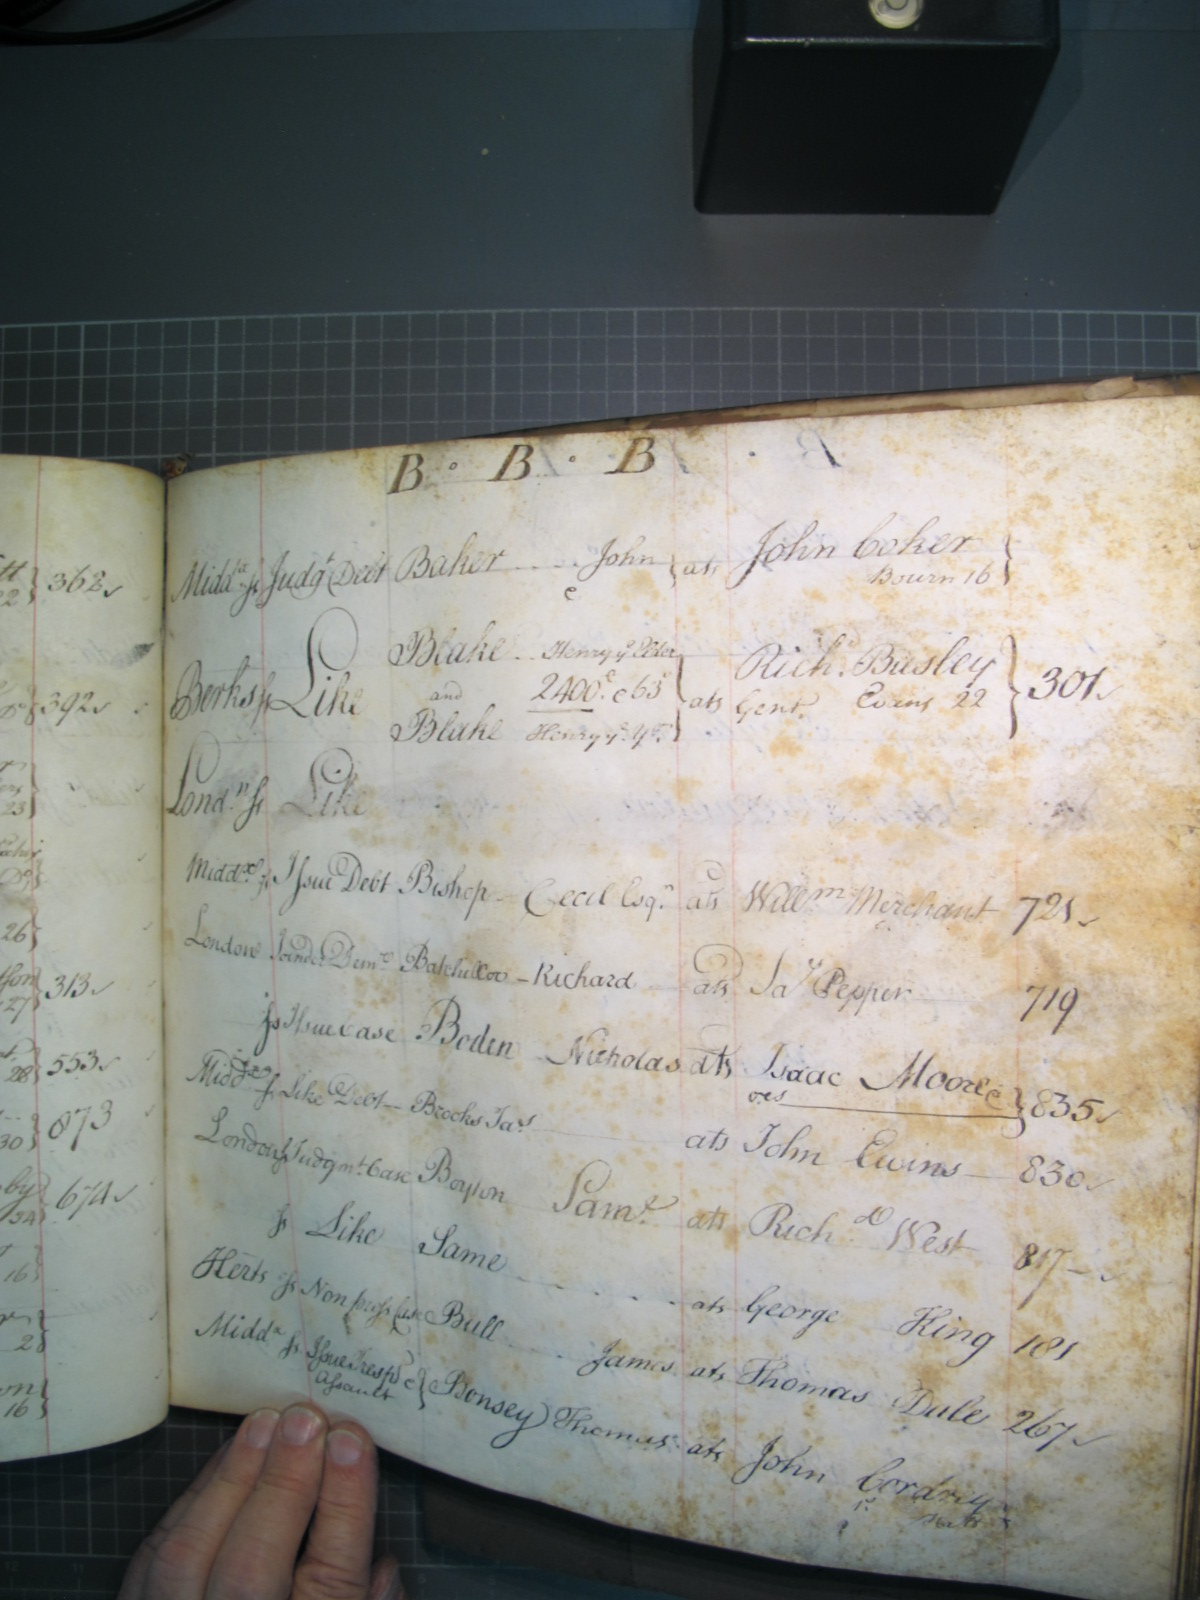 B · B · B
Midd.x ss Judg.t Debt Baker .... John } ats John Coker
Bourn 16 }
Blake .. Henry ye Elder
Berks ss Like and 2400£ c 63s } ats Rich.d Busley } 301
Gent. Evans 22
Blake Henry ye Yr.
Lond.n ss Like
Midd.x ss Issue Debt Bishop - Cecil Esq.r ats Will.m Merchant 721
London Joinder Dem.r Batchellor - Richard ats Ja.s Pepper 719
ss Issue Case Boden Nicholas ats Isaac Moore } 835
Midd.x ss Like Debt - Brooks Ja.s ats John Ewins 830
London ss Judgm.t Case Boyton Sam.l ats Rich.d West 817
ss Like Same .... ats George King 181
Herts ss Non pross Case Bull ... James ats Thomas Dale 267
Midd.x ss Issue Tresp.s } Bonsey Thomas ats John Cordrey
Assault
362
392
23
26
313
27
553
28
873
30
674
34
16
2
16